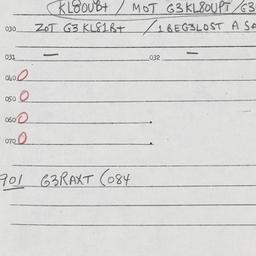 KL80UB+ / MOT G3KL80UPT/G3
030 ZOT G3 KL81B+ / 1BEG3LOST A SA
031 — 032 —
040 0
050 0
060 0
070 0
901 G3RAXT (084